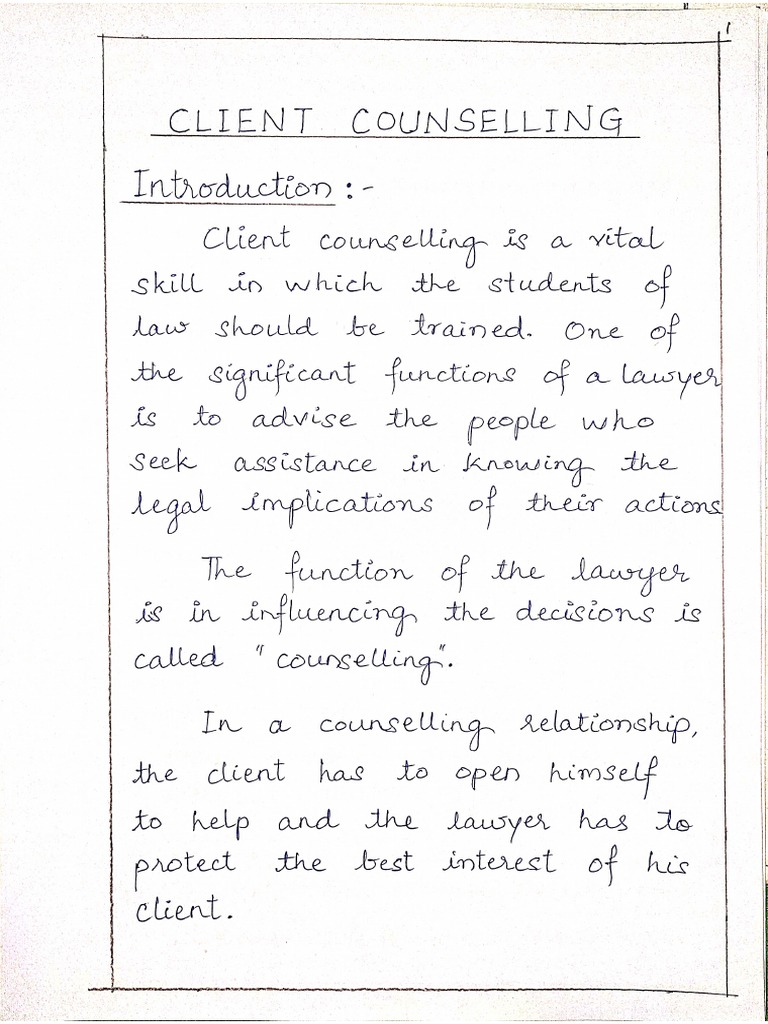 1
CLIENT COUNSELLING
Introduction :-
Client counselling is a vital
skill in which the students of
law should be trained. One of
the significant functions of a lawyer
is to advise the people who
seek assistance in knowing the
legal implications of their actions
The function of the lawyer
is in influencing the decisions is
called "counselling".
In a counselling relationship,
the client has to open himself
to help and the lawyer has to
protect the best interest of his
client.